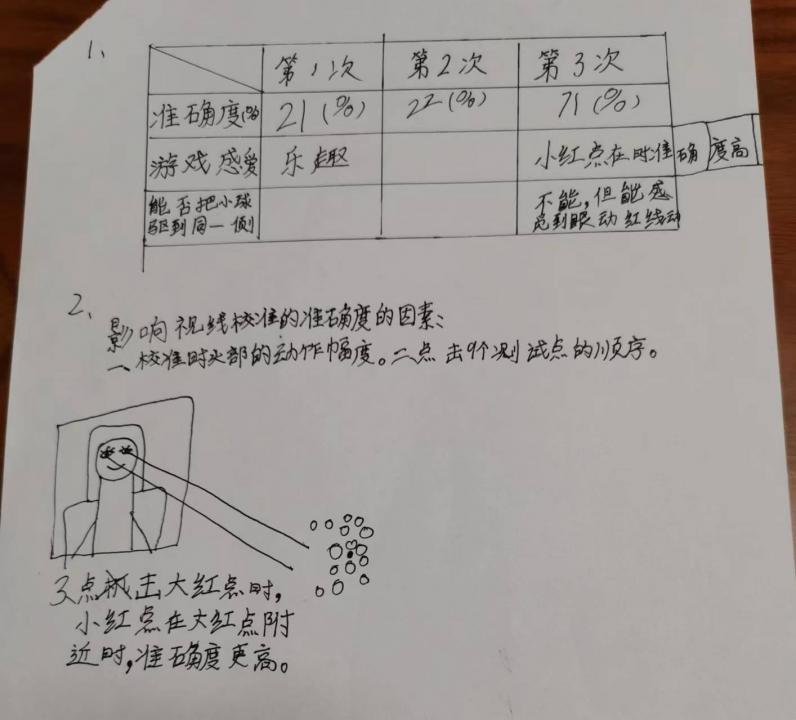 1、
第1次 第2次 第3次
准确度(%) 21(%) 22(%) 71(%)
游戏感爱 乐趣 小红点在时准确度高
能否把小球 不能,但能感
驱到同一侧 到眼动红线动
2、
影响视线校准的准确度的因素:
一、校准时头部的动作幅度。二点击9个测试点的顺序。
3、点击大红点时,
小红点在大红点附
近时,准确度更高。